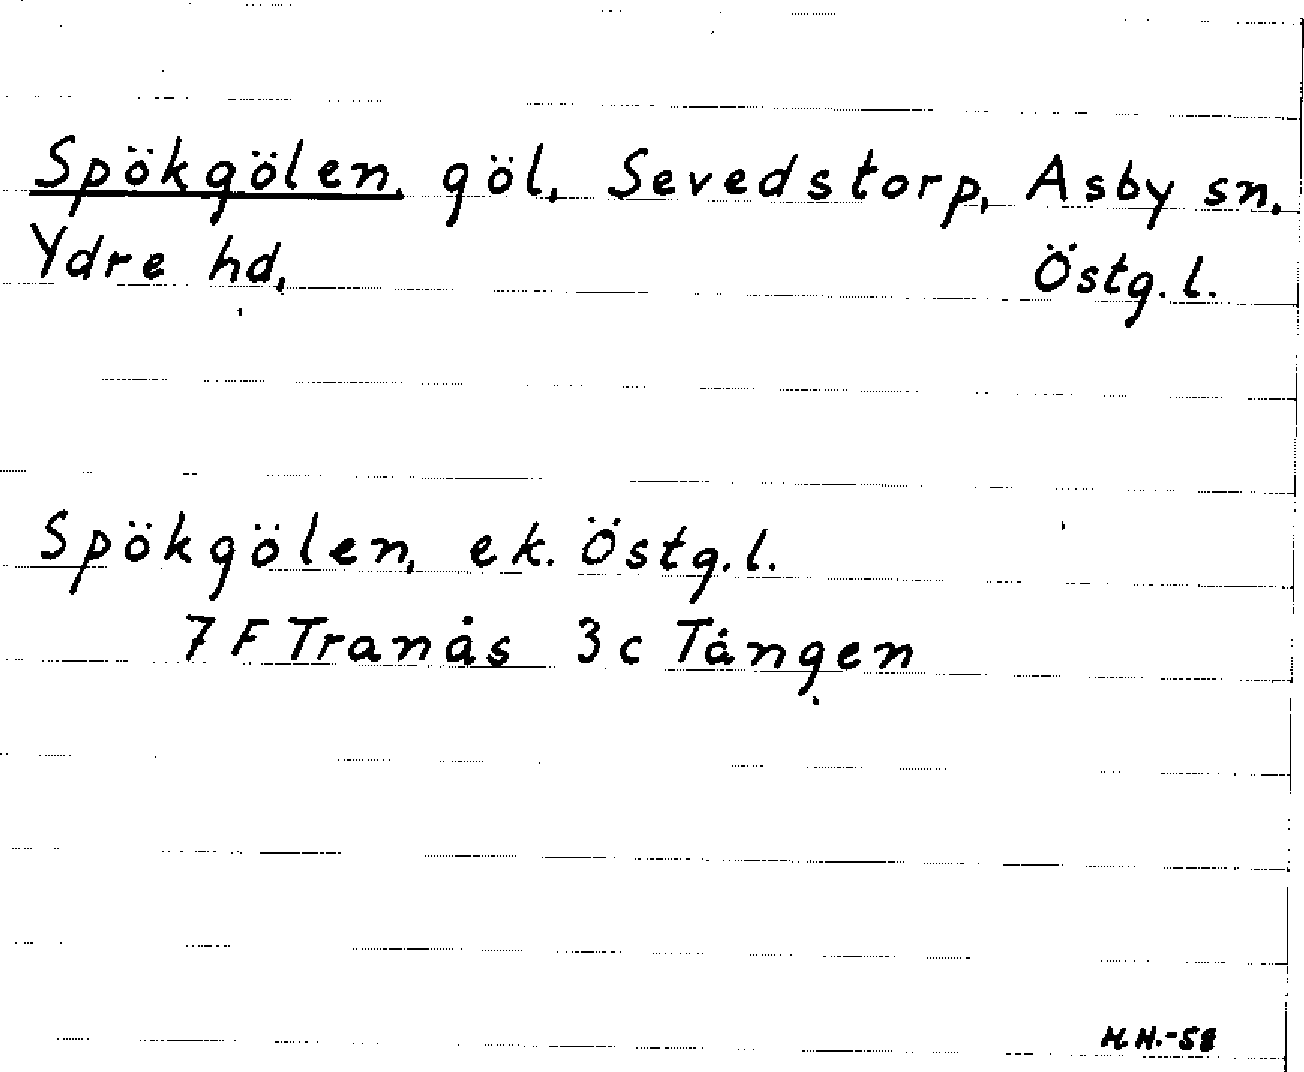 Spökgölen, göl, Sevedstorp, Asby sn,
Ydre hd, Östg. l.
Spökgölen, ek. Östg. l.
7 F Tranås 3 c Tången
H.H.-58